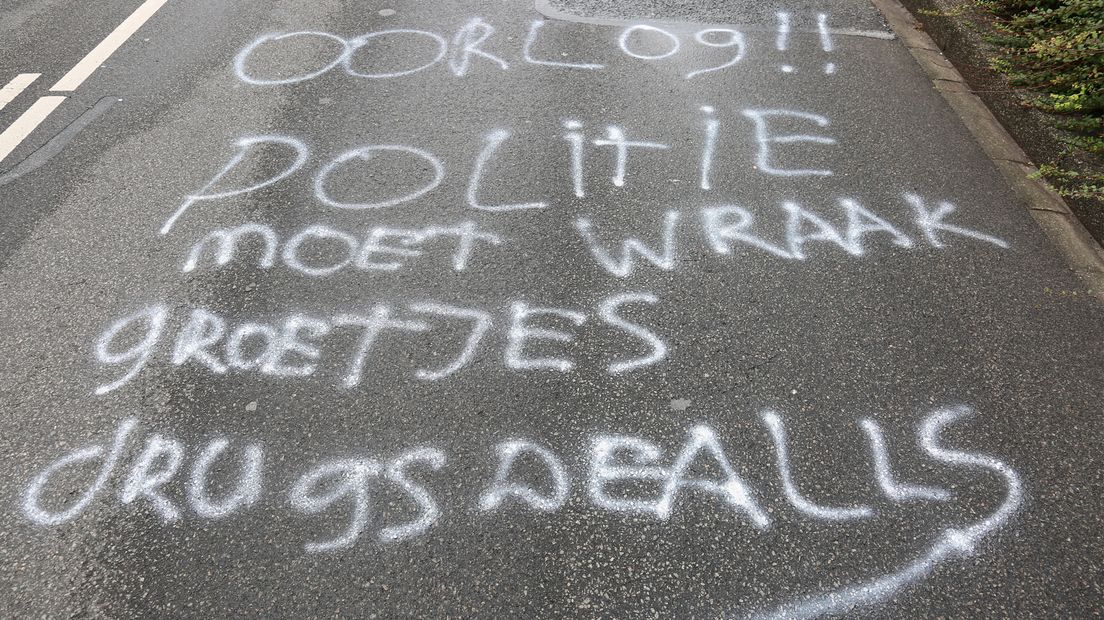 OORLog!!
POLitiE
moEt WRAAK
gROEtJES
dRUgs DEALLS